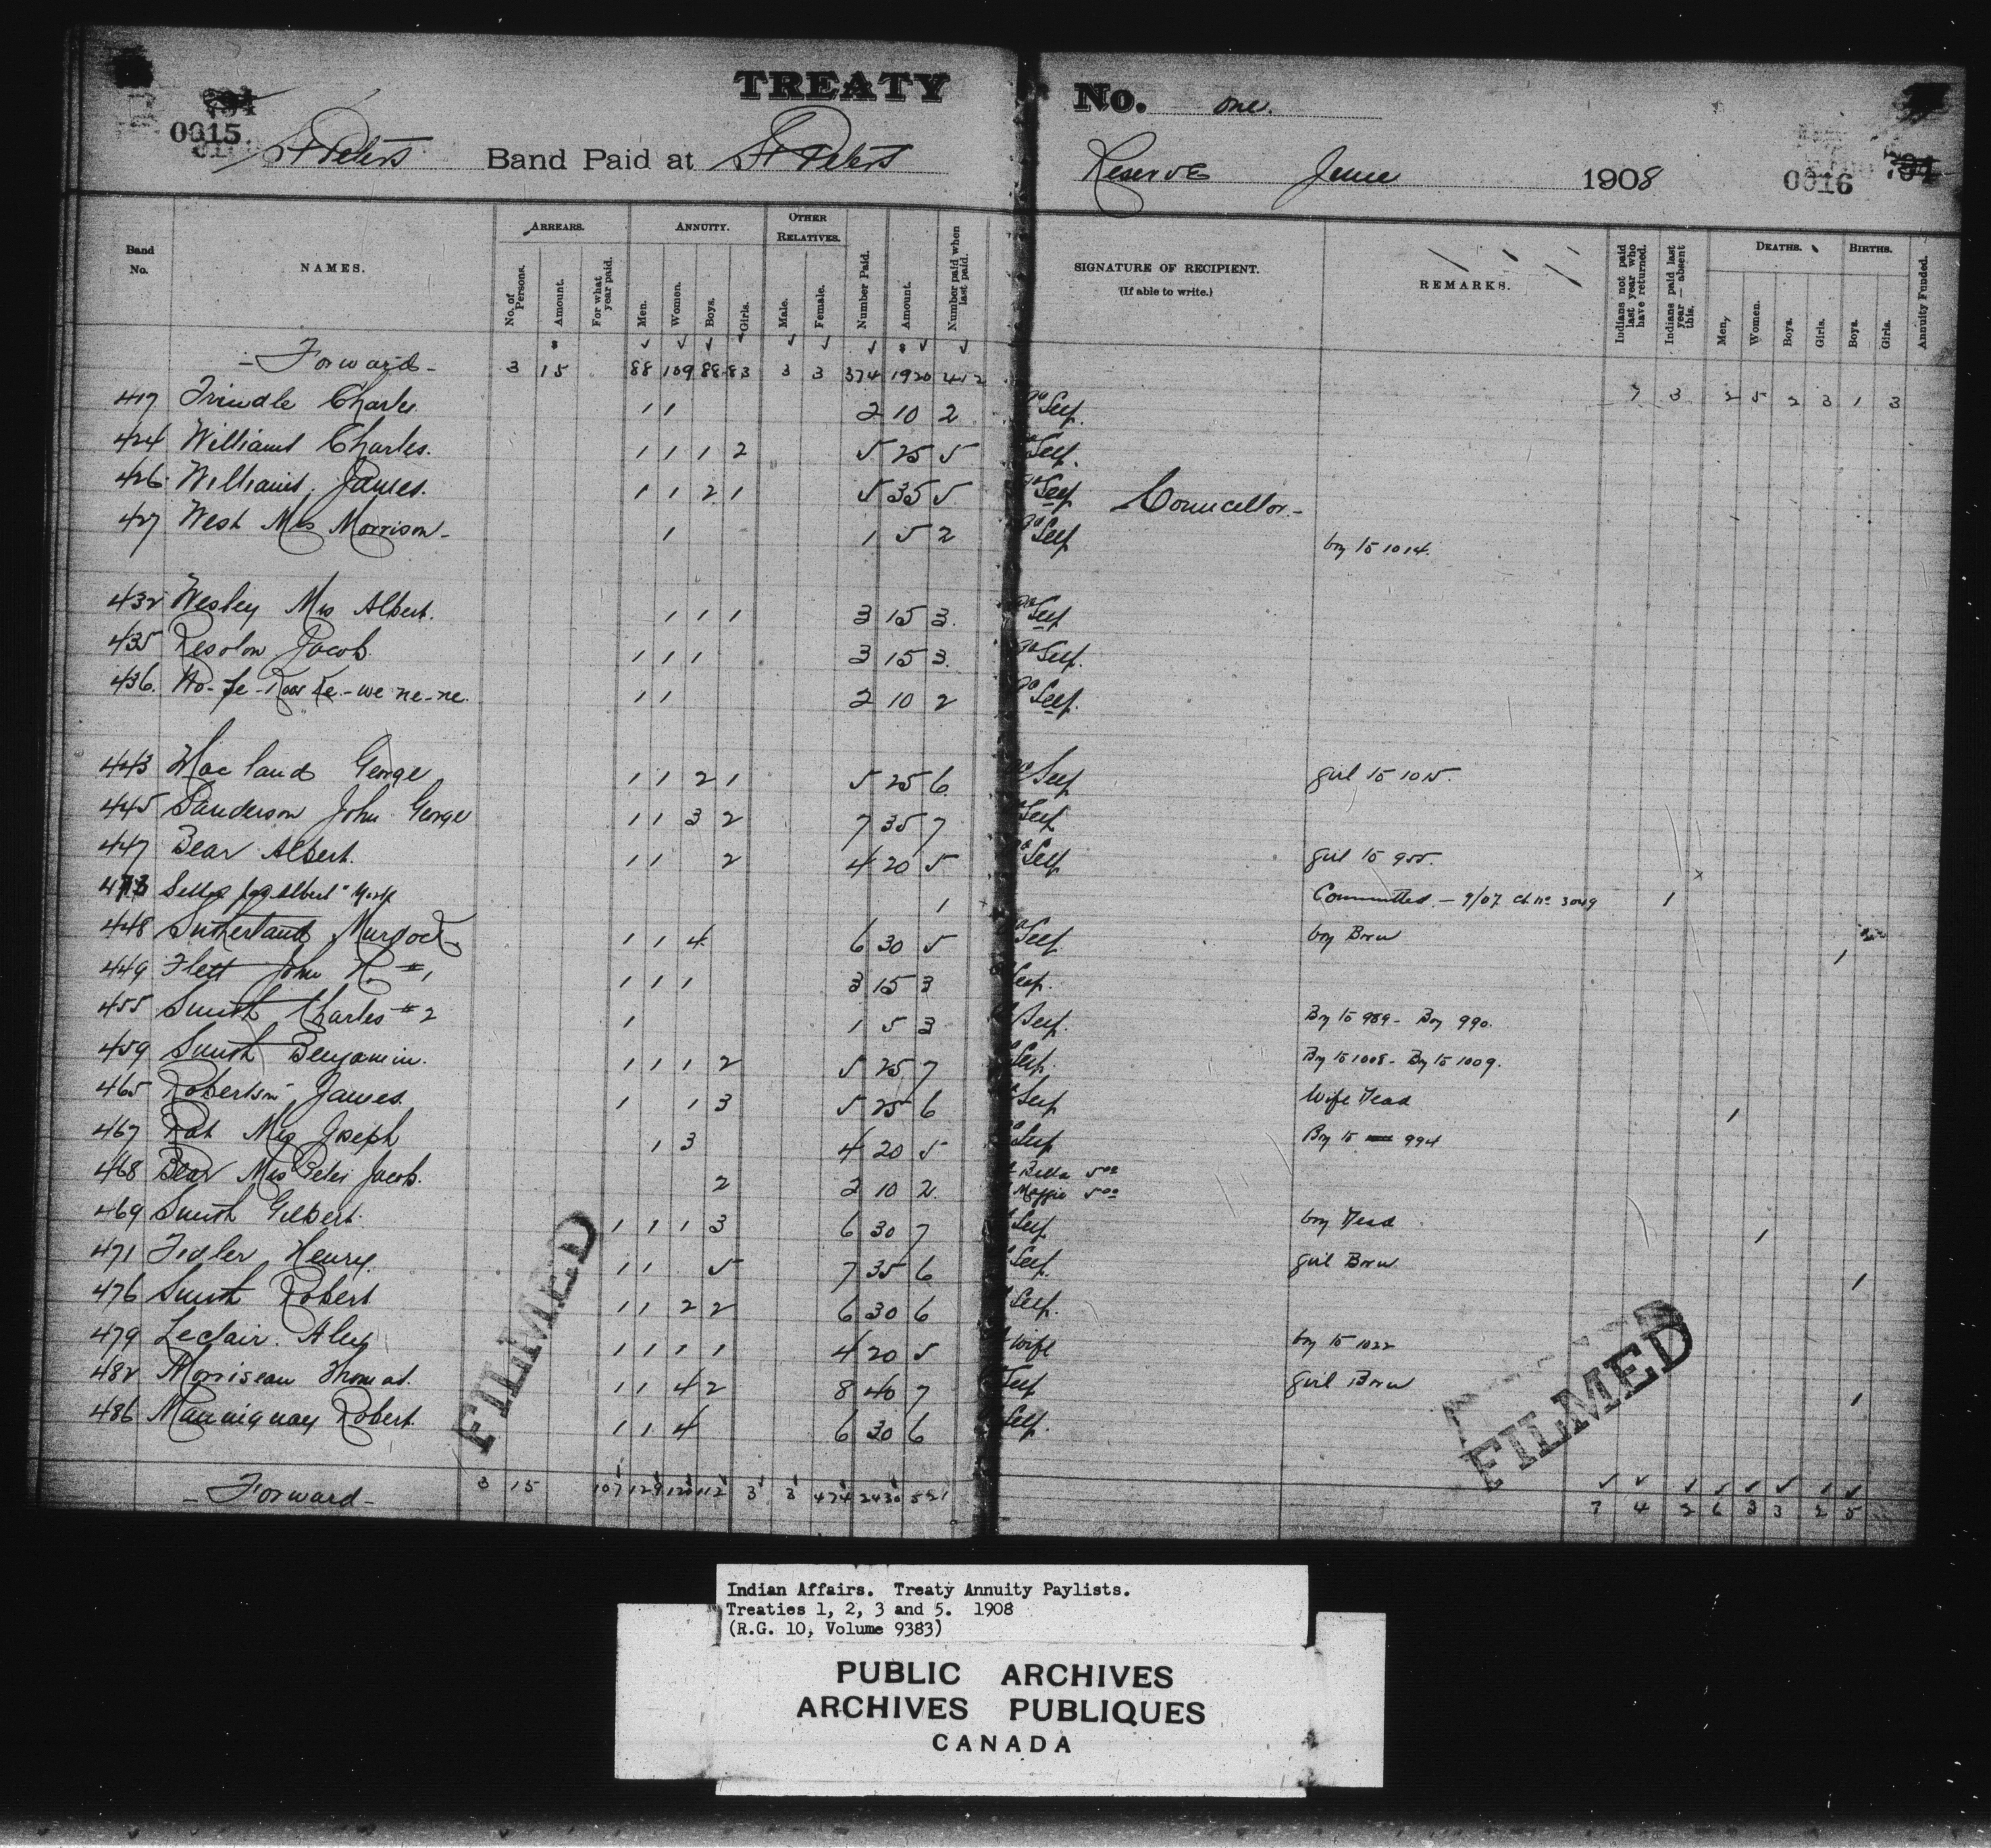 TREATY No. one.
794
0015
St Peters Band Paid at St Peters Reserve June 1908
0016
794
Band No. NAMES. ARREARS. No. of Persons. Amount. For what year paid. ANNUITY. Men. Women. Boys. Girls. OTHER RELATIVES. Male. Female. Number Paid. Amount. Number paid when last paid. SIGNATURE OF RECIPIENT. (If able to write.) REMARKS. Indians not paid last year who have returned. Indians paid last year — absent this. DEATHS. Men. Women. Boys. Girls. BIRTHS. Boys. Girls. Annuity Funded.
- Forward - 3 15 88 109 88 83 3 3 374 1920 412 7 3 2 5 2 3 1 3
417 Trindle Charles 1 1 2 10 2 Self.
424 Williams Charles. 1 1 1 2 5 25 5 Self.
426 Williams, James. 1 1 2 1 5 35 5 Self Councellor.-
427 West Mrs Morrison- 1 1 5 2 Self boy to 1014.
432 Wesley Mrs Albert. 1 1 1 3 15 3. Self
435 Jacob. 1 1 1 3 15 3. Self.
436. we-ne-ne. 1 1 2 10 2 Self.
443 George 1 1 2 1 5 25 6 Self girl to 1015.
445 Sanderson John George 1 1 3 2 7 35 7 Self
447 Bear Albert. 1 1 2 4 20 5 Self girl to 955.
473 Albert 1 Committed - 9/07 3049 1
448 Sutherland Murdock 1 1 4 6 30 5 Self boy Born 1
449 Flett John H. #1 1 1 1 3 15 3 Self.
455 Smith Charles #2 1 1 5 3 Self. Boy to 989 - Boy 990.
459 Smith Benjamin. 1 1 1 2 5 25 7 Self. Boy to 1008 - Boy to 1009.
465 Robertson James. 1 1 3 5 25 6 Self Wife Dead 1
467 Rat Mrs Joseph 1 3 4 20 5 Self Boy to 994
468 Bear Mrs Peter Jacob. 2 2 10 2. Bella 5.00 Maggie 5.00
469 Smith Gilbert. 1 1 1 3 6 30 7 Self. boy Dead 1
471 Fidler Henry. 1 1 5 7 35 6 Self. girl Born 1
476 Smith Robert 1 1 2 2 6 30 6 Self.
479 Leclair. Alex 1 1 1 1 4 20 5 wife boy to 1022
482 Morriseau Thomas. 1 1 4 2 8 40 7 Self girl Born 1
486 Robert. 1 1 4 6 30 6 Self.
- Forward - 3 15 107 129 120 112 3 3 474 2430 521 7 4 2 6 3 3 2 5
FILMED
FILMED
Indian Affairs. Treaty Annuity Paylists.
Treaties 1, 2, 3 and 5. 1908
(R.G. 10, Volume 9383)
PUBLIC ARCHIVES
ARCHIVES PUBLIQUES
CANADA